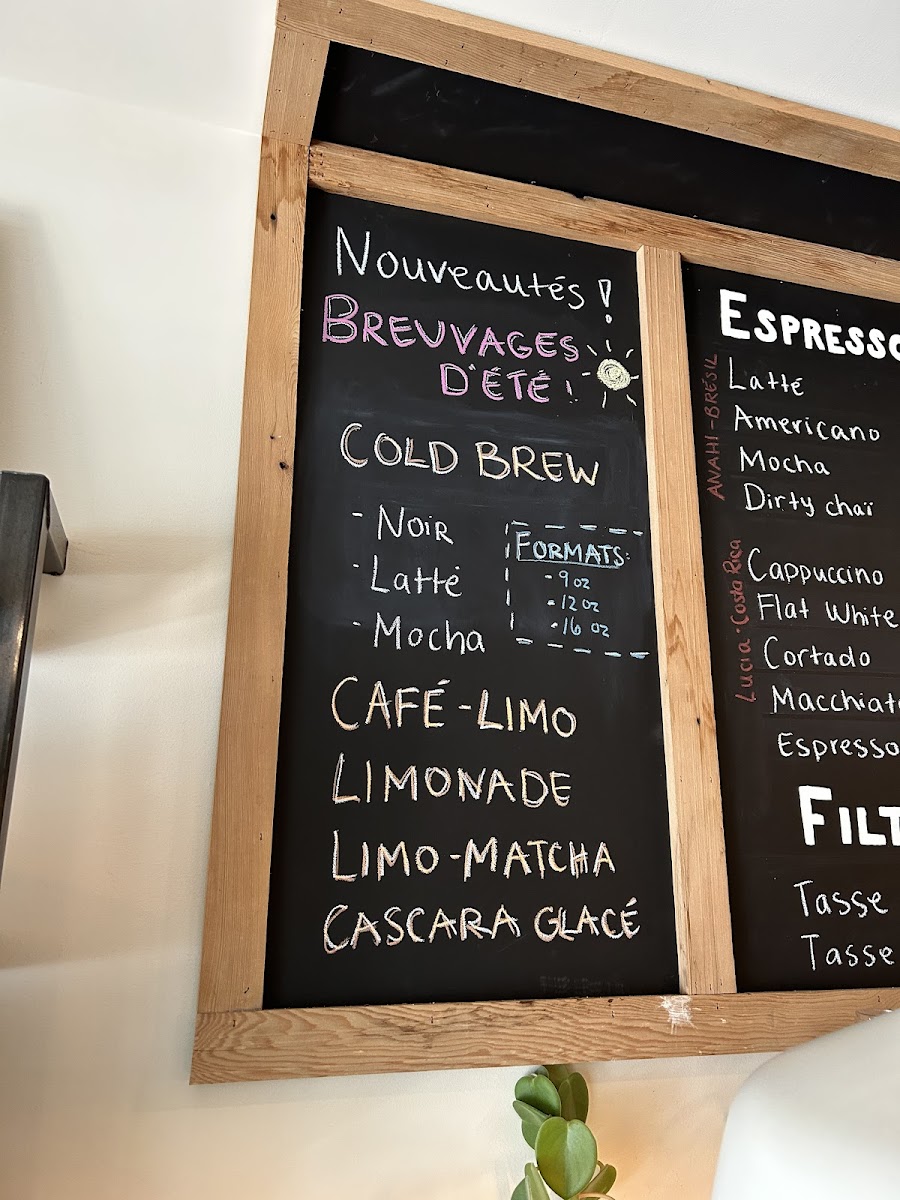 Nouveautés !
BREUVAGES
D'ÉTÉ !
COLD BREW
- Noir
- Latté
- Mocha
FORMATS:
- 9 oz
- 12 oz
- 16 oz
CAFÉ-LIMO
LIMONADE
LIMO-MATCHA
CASCARA GLACÉ
ESPRESSO
ANAHI-BRÉSIL
Latté
Americano
Mocha
Dirty chaï
Lucia · Costa Rica
Cappuccino
Flat White
Cortado
Macchiato
Espresso
FILT
Tasse
Tasse